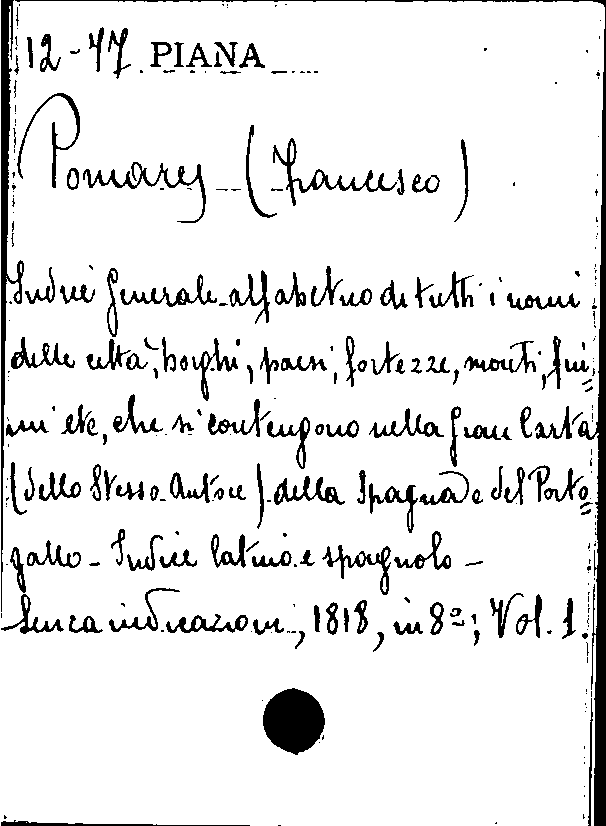 12-47 PIANA
Pomares (Francesco)
Indice Generale alfabetico di tutti i nomi
delle città, borghi, paesi, fortezze, monti, fiu=
mi etc, che si contengono nella Gran Carta
(dello Stesso Autore) della Spagna e del Porto=
gallo - Indice latino e spagnolo -
Senza indicazioni, 1818, in 8º; Vol. 1.